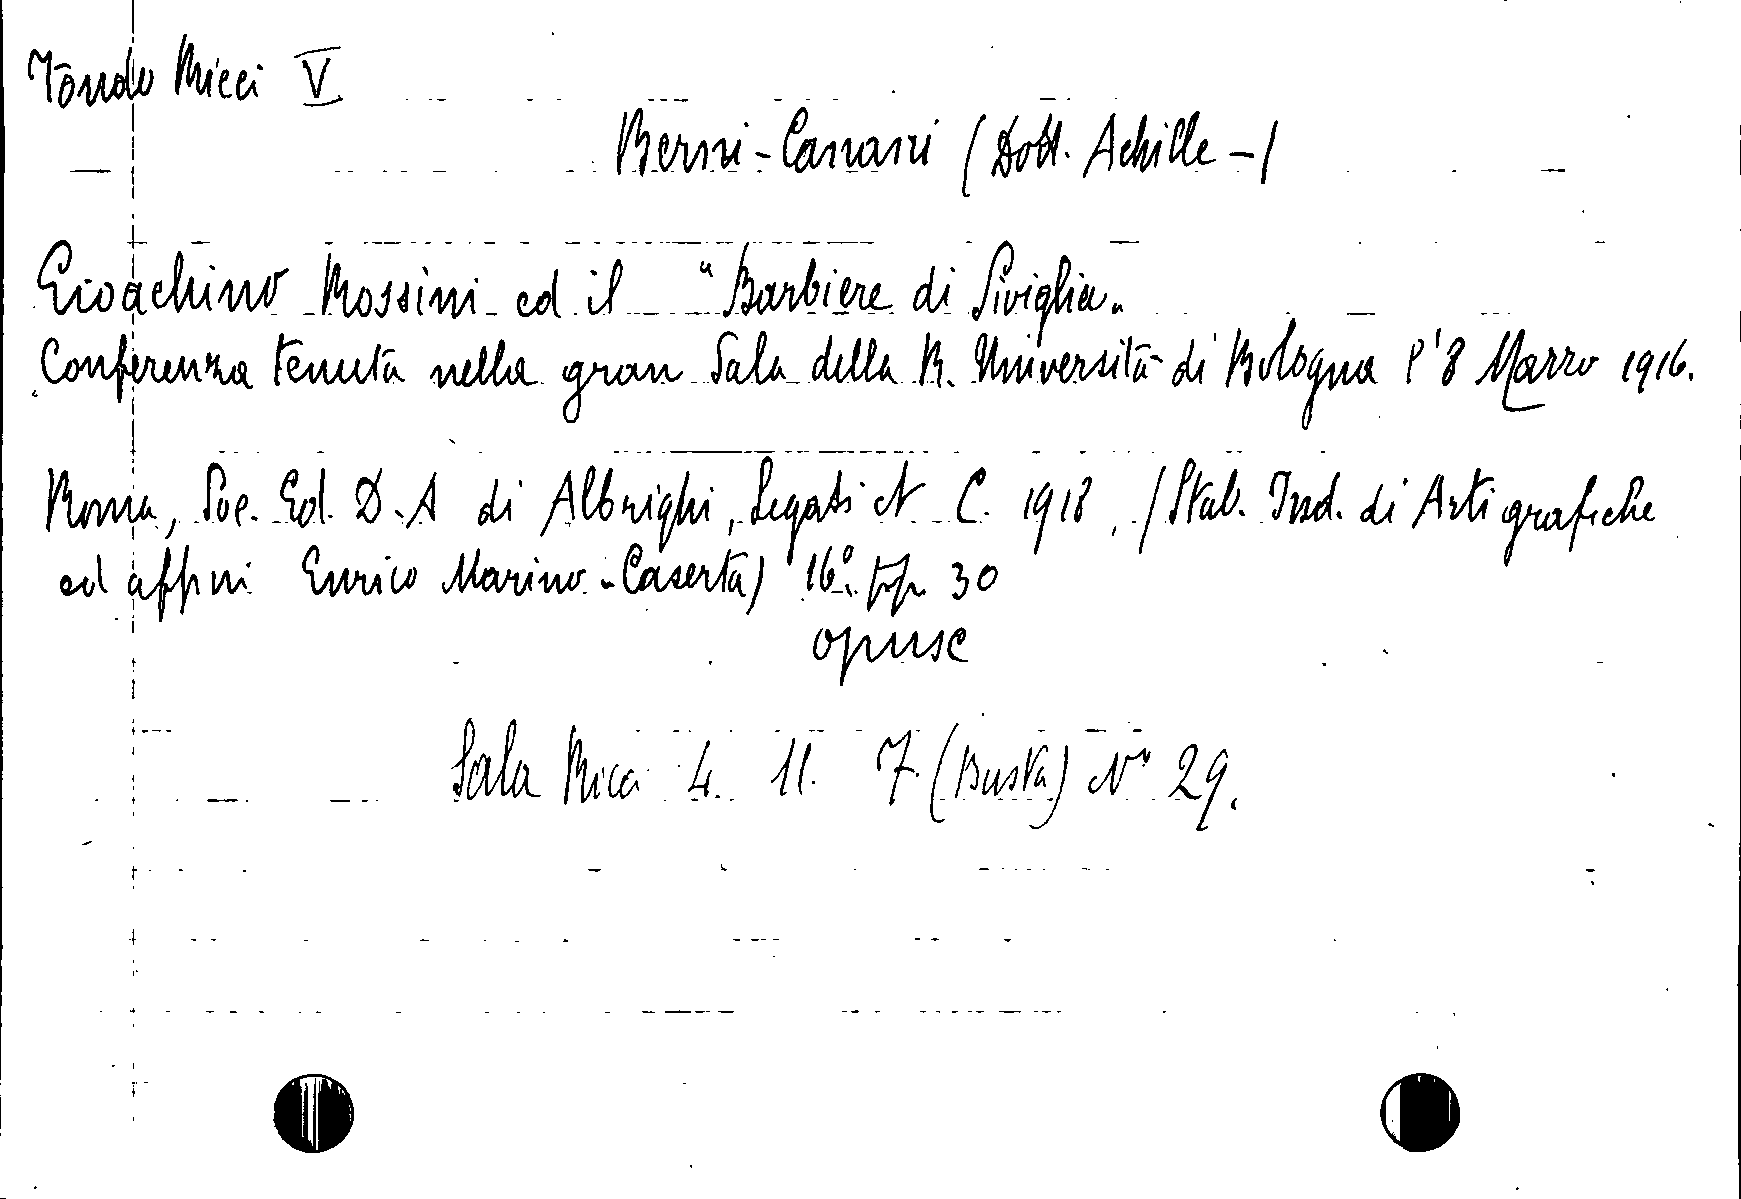 Fondo Ricci V
Berni-Canani (Dott. Achille -)
Gioachino Rossini ed il "Barbiere di Siviglia"
Conferenza tenuta nella gran Sala della R. Università di Bologna l'8 Marzo 1916.
Roma, Soc. Ed. D.A di Albrighi, Segati e C. 1918. (Stab. Ind. di Arti grafiche
ed affini Enrico Marino - Caserta) 16º. pp. 30
opusc
Sala Ricci 4. 11. 7. (Busta) Nº 29.